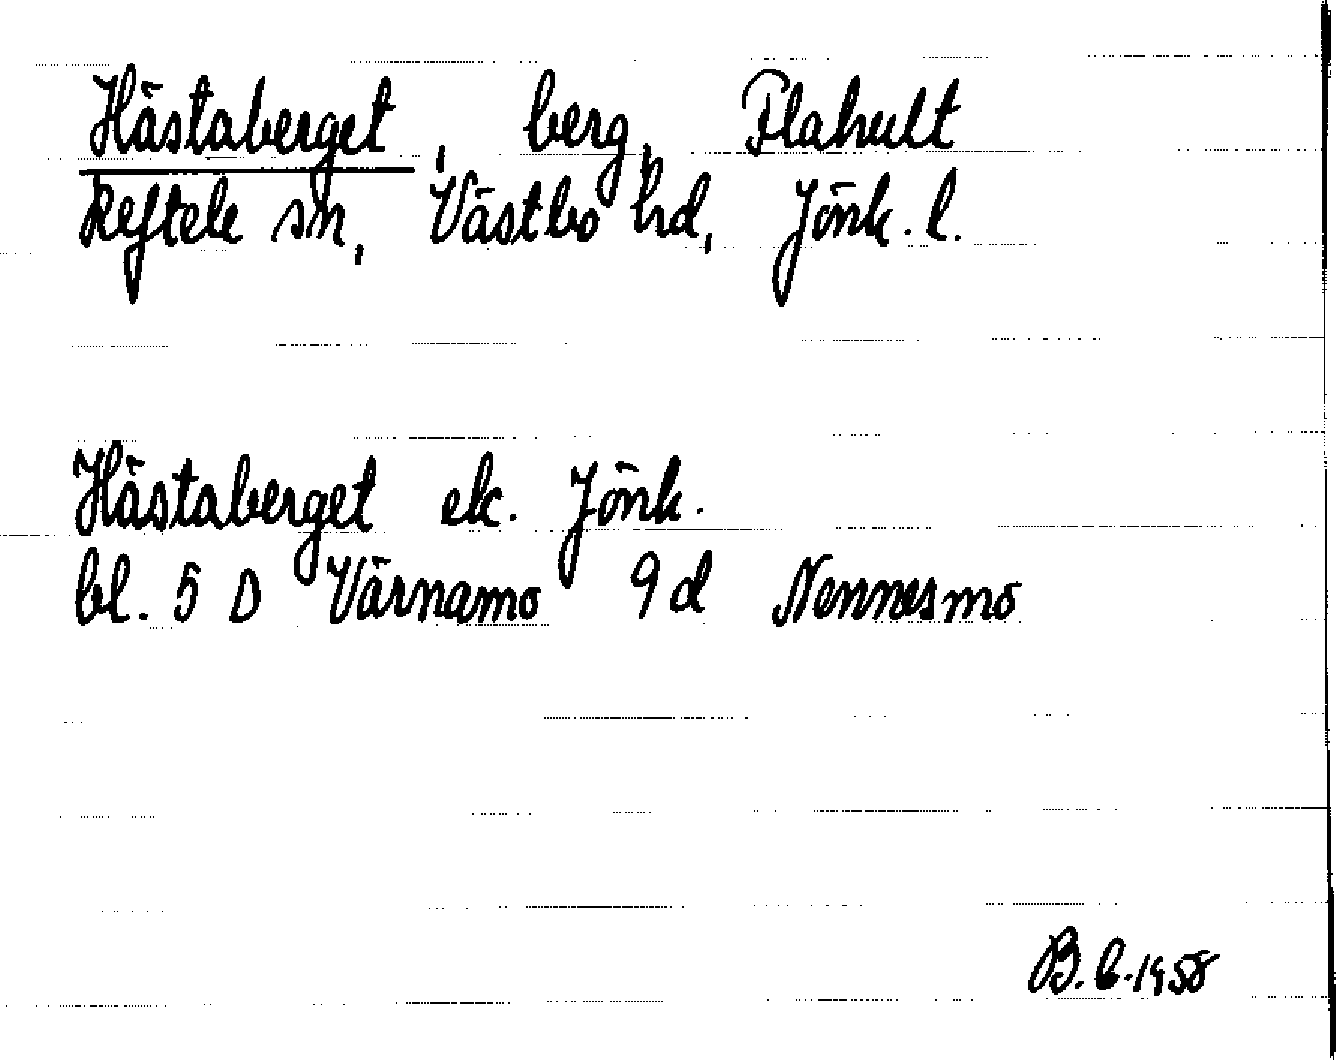 Hästaberget, berg, Flahult
Reftele sn, Västbo hd, Jönk. l.
Hästaberget ek. Jönk.
bl. 5 D Värnamo 9 d Nennesmo
B. 1958